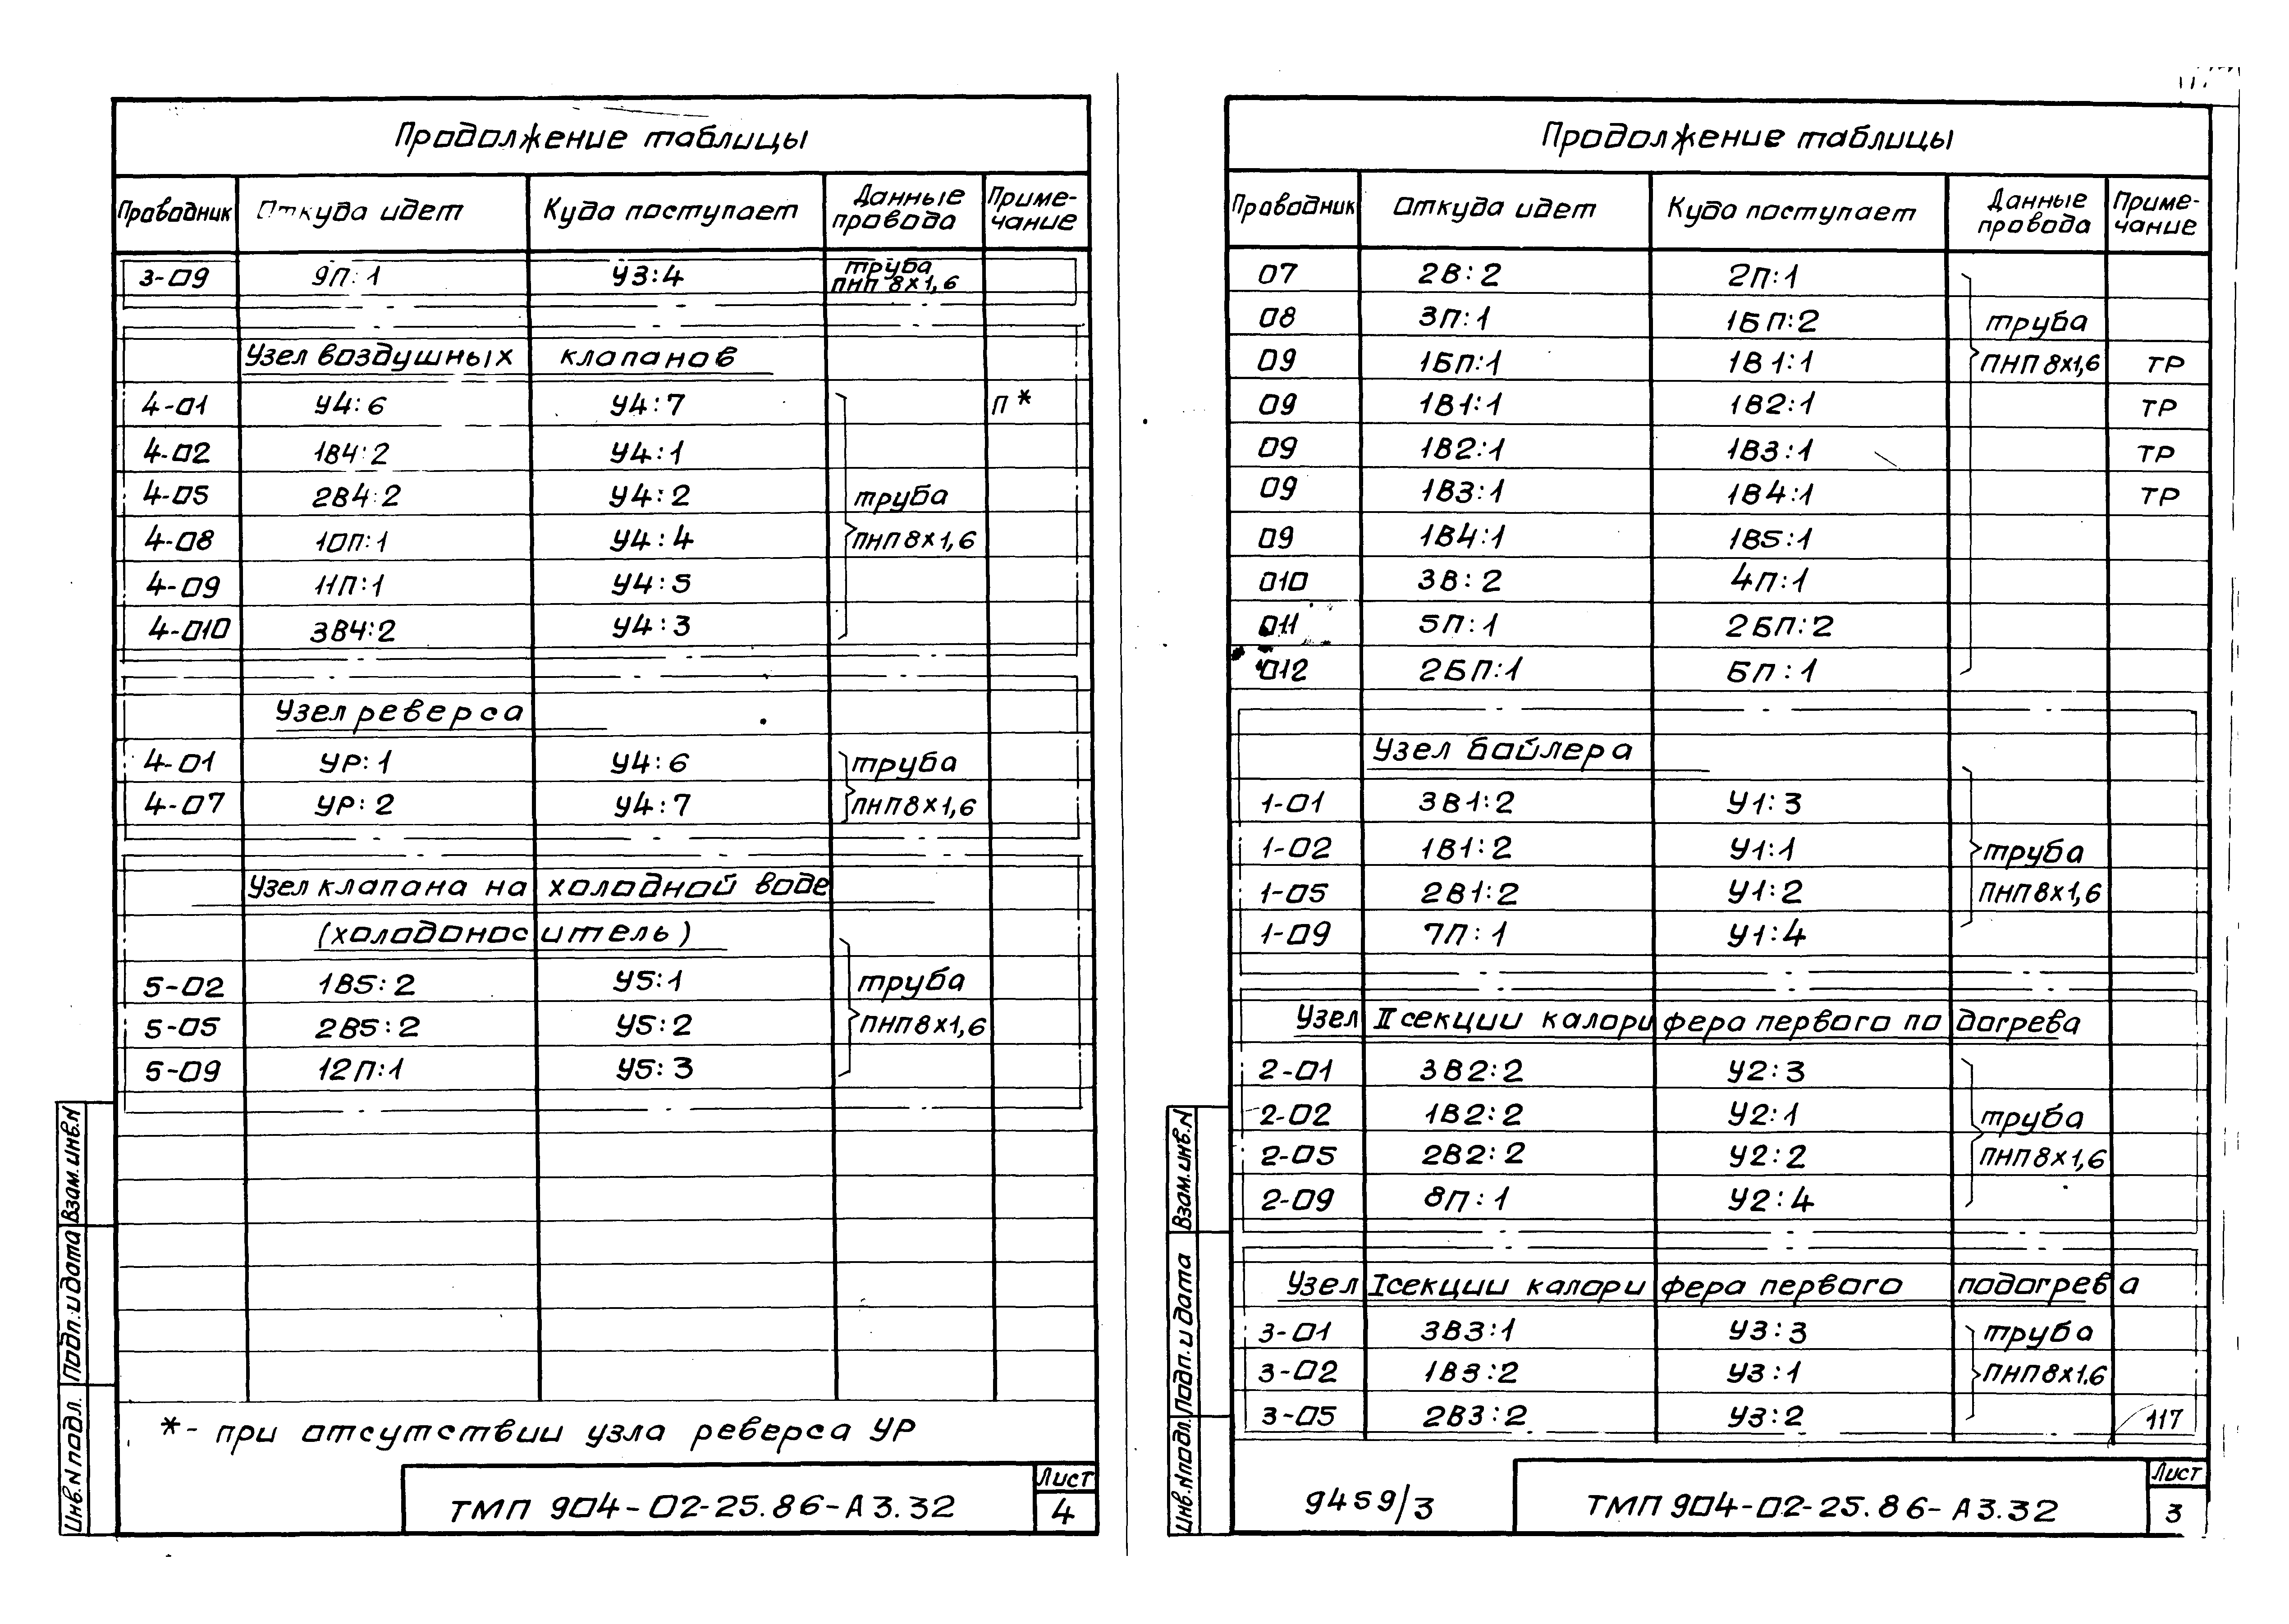 Продолжение таблицы
Проводник Откуда идет Куда поступает Данные провода Примечание
3-09 9П:1 У3:4 труба ПНП 8×1,6
Узел воздушных клапанов
4-01 У4:6 У4:7 П*
4-02 1В4:2 У4:1
4-05 2В4:2 У4:2 труба
4-08 10П:1 У4:4 ПНП 8×1,6
4-09 11П:1 У4:5
4-010 3В4:2 У4:3
Узел реверса
4-01 УР:1 У4:6 труба
4-07 УР:2 У4:7 ПНП 8×1,6
Узел клапана на холодной воде
(холодоноситель)
5-02 1В5:2 У5:1 труба
5-05 2В5:2 У5:2 ПНП 8×1,6
5-09 12П:1 У5:3
*- при отсутствии узла реверса УР
ТМП 904-02-25.86-А3.32
Лист
4
Взам.инв.N
Подп.идата
Инв.Nподл.
Продолжение таблицы
Проводник Откуда идет Куда поступает Данные провода Примечание
07 2В:2 2П:1
08 3П:1 1БП:2 труба
09 1БП:1 1В1:1 ПНП 8×1,6 ТР
09 1В1:1 1В2:1 ТР
09 1В2:1 1В3:1 ТР
09 1В3:1 1В4:1 ТР
09 1В4:1 1В5:1
010 3В:2 4П:1
011 5П:1 2БП:2
012 2БП:1 БП:1
Узел бойлера
1-01 3В1:2 У1:3
1-02 1В1:2 У1:1 труба
1-05 2В1:2 У1:2 ПНП 8×1,6
1-09 7П:1 У1:4
Узел II секции калорифера первого подогрева
2-01 3В2:2 У2:3
2-02 1В2:2 У2:1 труба
2-05 2В2:2 У2:2 ПНП 8×1,6
2-09 8П:1 У2:4
Узел I секции калорифера первого подогрева
3-01 3В3:1 У3:3 труба
3-02 1В3:2 У3:1 ПНП 8×1.6
3-05 2В3:2 У3:2 117
9459/3
ТМП 904-02-25.86-А3.32
Лист
3
Взам.инв.N
Подп.и дата
Инв.Nподл.